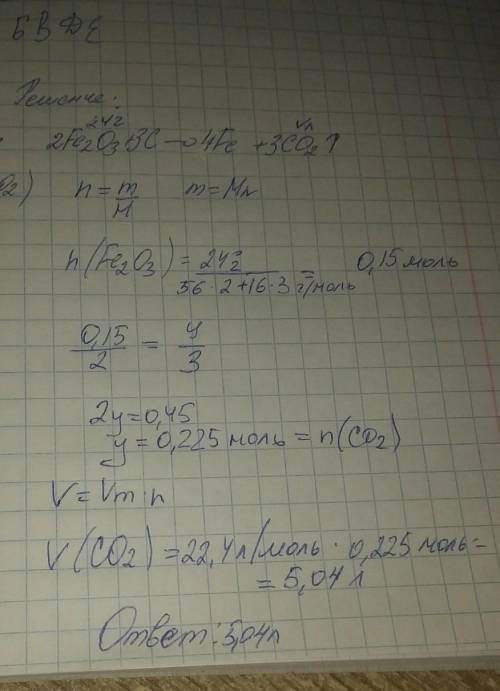 Б В Д Е
Решение:
24г Vл
2Fe₂O₃+3C→4Fe+3CO₂↑
O₂) n=m/M m=Mn
n(Fe₂O₃)=24г/(56·2+16·3 г/моль)= 0,15 моль
0,15/2 = y/3
2y=0,45
y=0,225 моль=n(CO₂)
V=Vm·n
V(CO₂)=22,4л/моль·0,225 моль=
=5,04 л
Ответ: 5,04л